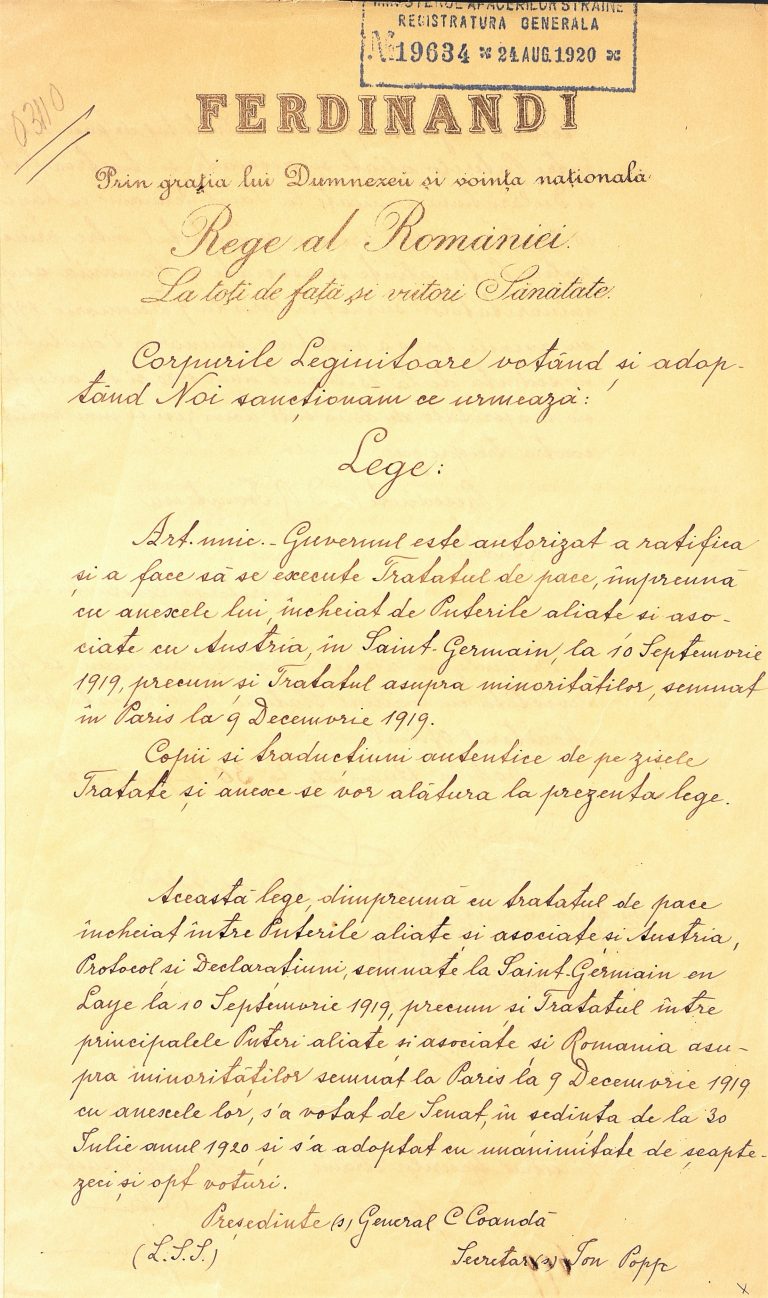 MINISTERUL AFACERILOR STRĂINE
REGISTRATURA GENERALA
№ 19634 * 24 AUG. 1920 *
03110
FERDINAND I
Prin grația lui Dumnezeu și voința națională
Rege al României.
La toți de față și viitori Sănătate.
Corpurile Legiuitoare votând și adop-
tând Noi sancționăm ce urmează:
Lege:
Art. unic. - Guvernul este autorizat a ratifica
și a face să se execute Tratatul de pace, împreună
cu anexele lui, încheiat de Puterile aliate si aso-
ciate cu Austria, în Saint-Germain, la 10 Septemvrie
1919, precum și Tratatul asupra minorităților, semnat
în Paris la 9 Decemvrie 1919.
Copii si traducțiuni autentice de pe zisele
Tratate și anexe se vor alătura la prezenta lege.
Această lege, dimpreună cu tratatul de pace
încheiat între Puterile aliate și asociate și Austria,
Protocol și Declarațiuni, semnate la Saint-Germain en
Laye la 10 Septemvrie 1919, precum și Tratatul între
principalele Puteri aliate si asociate si Romania asu-
pra minorităților semnat la Paris la 9 Decemvrie 1919
cu anexele lor, s'a votat de Senat, în sedința de la 30
Iulie anul 1920 și s'a adoptat cu unanimitate de șeapte-
zeci și opt voturi.
Președinte (s) General C Coandă
(L.S.S.)
Secretar (s) Ion Popp